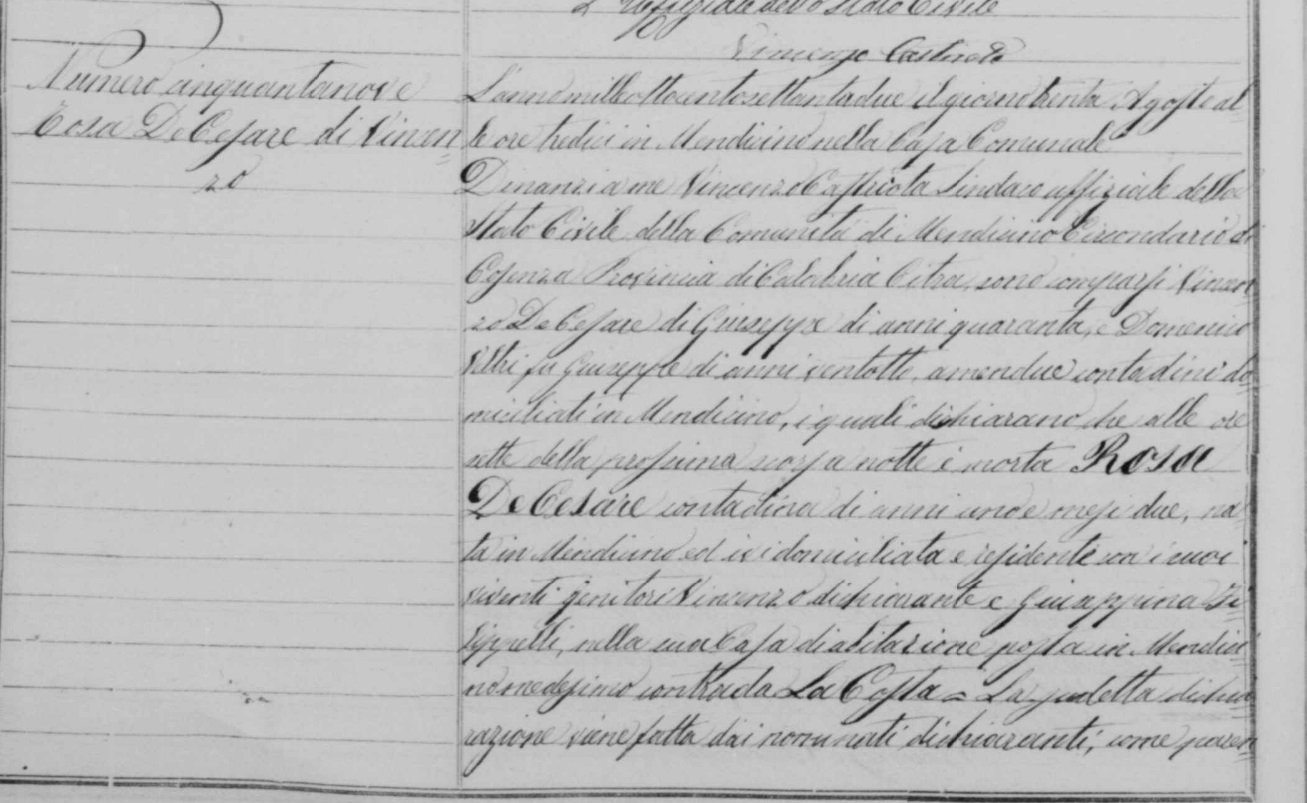 L'Uffiziale dello Stato Civile
Vincenzo Castriota
Numero cinquantanove
Rosa De Cesare di Vincen=
zo
L'anno milleottocentosettantadue il giorno trenta Agosto al=
le ore tredici in Mendicino nella Casa Comunale
Dinanzi a me Vincenzo Castriota Sindaco uffiziale dello
Stato Civile della Comunità di Mendicino Circondario di
Cosenza Provincia di Calabria Citra, sono comparsi Vincen=
zo De Cesare di Giuseppe di anni quaranta, e Domenico
fu Giuseppe di anni ventotto, amendue contadini do=
miciliati in Mendicino, i quali dichiarano che alle ore
sette della prossima scorsa notte è morta Rosa
De Cesare contadina di anni uno e mesi due, na=
ta in Mendicino ed ivi domiciliata e residente con i suoi
viventi genitori Vincenzo dichiarante e Giuseppina Fi=
lippelli, nella sua Casa di abitazione posta in Mendici=
no medesimo contrada La Costa = La sudetta dichia=
razione viene fatta dai nominati dichiaranti, come paren=